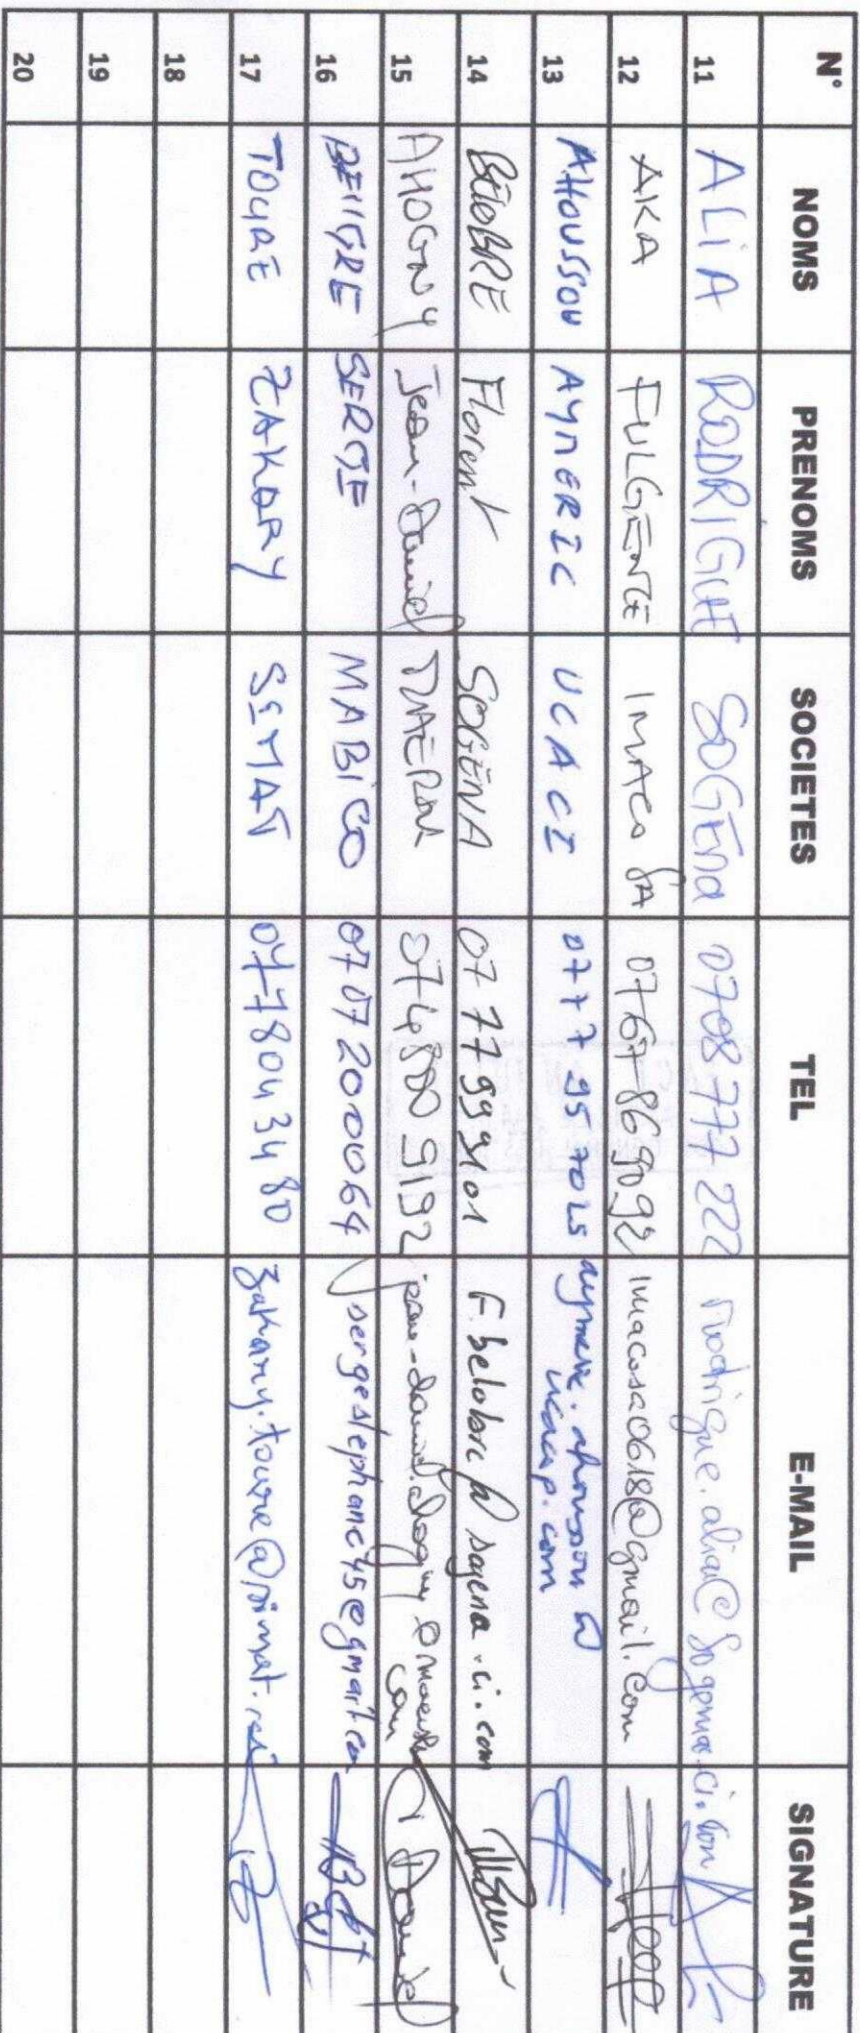 N° NOMS PRENOMS SOCIETES TEL E-MAIL SIGNATURE
11 ALIA RODRIGUE SOGENA 0708 777 222 rodrigue.alia@sogena.ci.com
12 AKA FULGENCE IMACO SA 0767869092 imacosa0618@gmail.com
13 AHOUSSOU AYMERIC UCACI 0777957025 aymeric.ahoussou@
ucacap.com
14 BELOBRE Florent SOGENA 07 77 999101 F.belobre@sogena.ci.com
15 AHOGNY Jean-Daniel 0748009192 jean-daniel.ahogny
com Daniel
16 BEUGRE SERGE MABICO 0707200064 sergestephane45@gmail.co
17 TOURE ZAKARY SIMAT 0778043480 zakary.toure@simat.ci
18
19
20